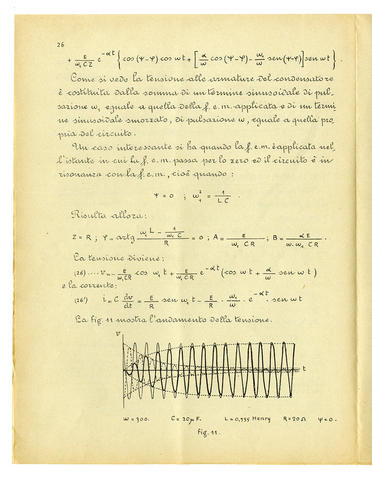 26
+ E/(ω₁CZ) e^(-αt) { cos (Ψ-φ) cos ωt + [ α/ω cos (Ψ-φ) - ω₁/ω sen (Ψ-φ) ] sen ωt } .
Come si vede la tensione alle armature del condensatore
è costituita dalla somma di un termine sinusoidale di pul-
sazione ω₁ eguale a quella della f.e.m. applicata e di un termi
ne sinusoidale smorzato, di pulsazione ω, eguale a quella pro
pria del circuito.
Un caso interessante si ha quando la f.e.m. è applicata nel
l'istante in cui la f.e.m. passa per lo zero ed il circuito è in
risonanza con la f.e.m., cioè quando :
Ψ = 0 ; ω₁² = 1/(LC) .
Risulta allora:
Z = R ; φ = artg (ω₁L - 1/(ω₁C))/R = 0 ; A = E/(ω₁CR) ; B = αE/(ω·ω₁CR) .
La tensione diviene:
(26) .... v = - E/(ω₁CR) cos ω₁t + E/(ω₁CR) e^(-αt) (cos ωt + α/ω sen ωt)
e la corrente:
(26') i = C dv/dt = E/R sen ω₁t - E/R · ω₁/ω · e^(-αt) · sen ωt
La fig. 11 mostra l'andamento della tensione.
v
t
ω = 300. C = 20 μF. L = 0,555 Henry R = 20 Ω Ψ = 0.
Fig. 11.